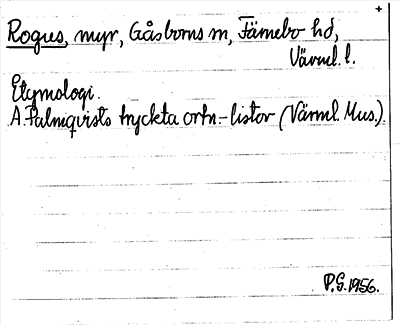 +
Rogus, myr, Gåsborns sn, Färnebo hd,
Värml. l.
Etymologi.
A. Palmqvists tryckta ortn.-listor (Värml. Mus.).
P.G. 1956.